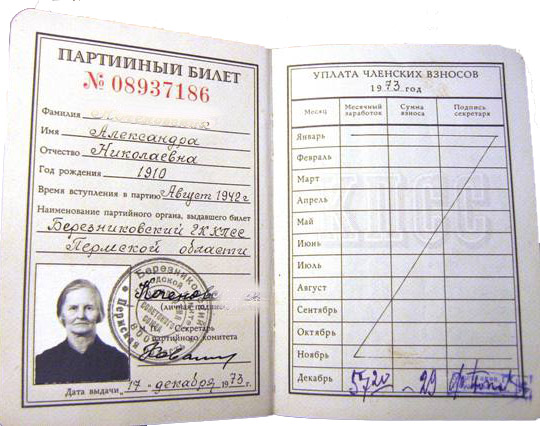 ПАРТИЙНЫЙ БИЛЕТ
№ 08937186
Фамилия
Имя Александра
Отчество Николаевна
Год рождения 1910
Время вступления в партию Август 1942 г
Наименование партийного органа, выдавшего билет
Березниковский ГК КПСС
Пермской области
(личная подпись)
Секретарь
партийного комитета
Дата выдачи „17" декабря 1973 г.
УПЛАТА ЧЛЕНСКИХ ВЗНОСОВ
1973 год
Месяц Месячный заработок Сумма взноса Подпись секретаря
Январь
Февраль
Март
Апрель
Май
Июнь
Июль
Август
Сентябрь
Октябрь
Ноябрь
Декабрь 57-20
КПСС